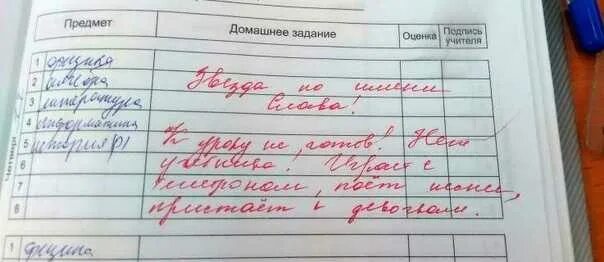 Предмет Домашнее задание Оценка Подпись учителя
1 физика
2 алгебра Звезда по имени
3 литература Слава!
4 информатика
Четверг 5 история К уроку не готов! Нет
6 учебника! Играет с
7 телефоном, поёт песни,
8 пристаёт к девочкам.
1 физика